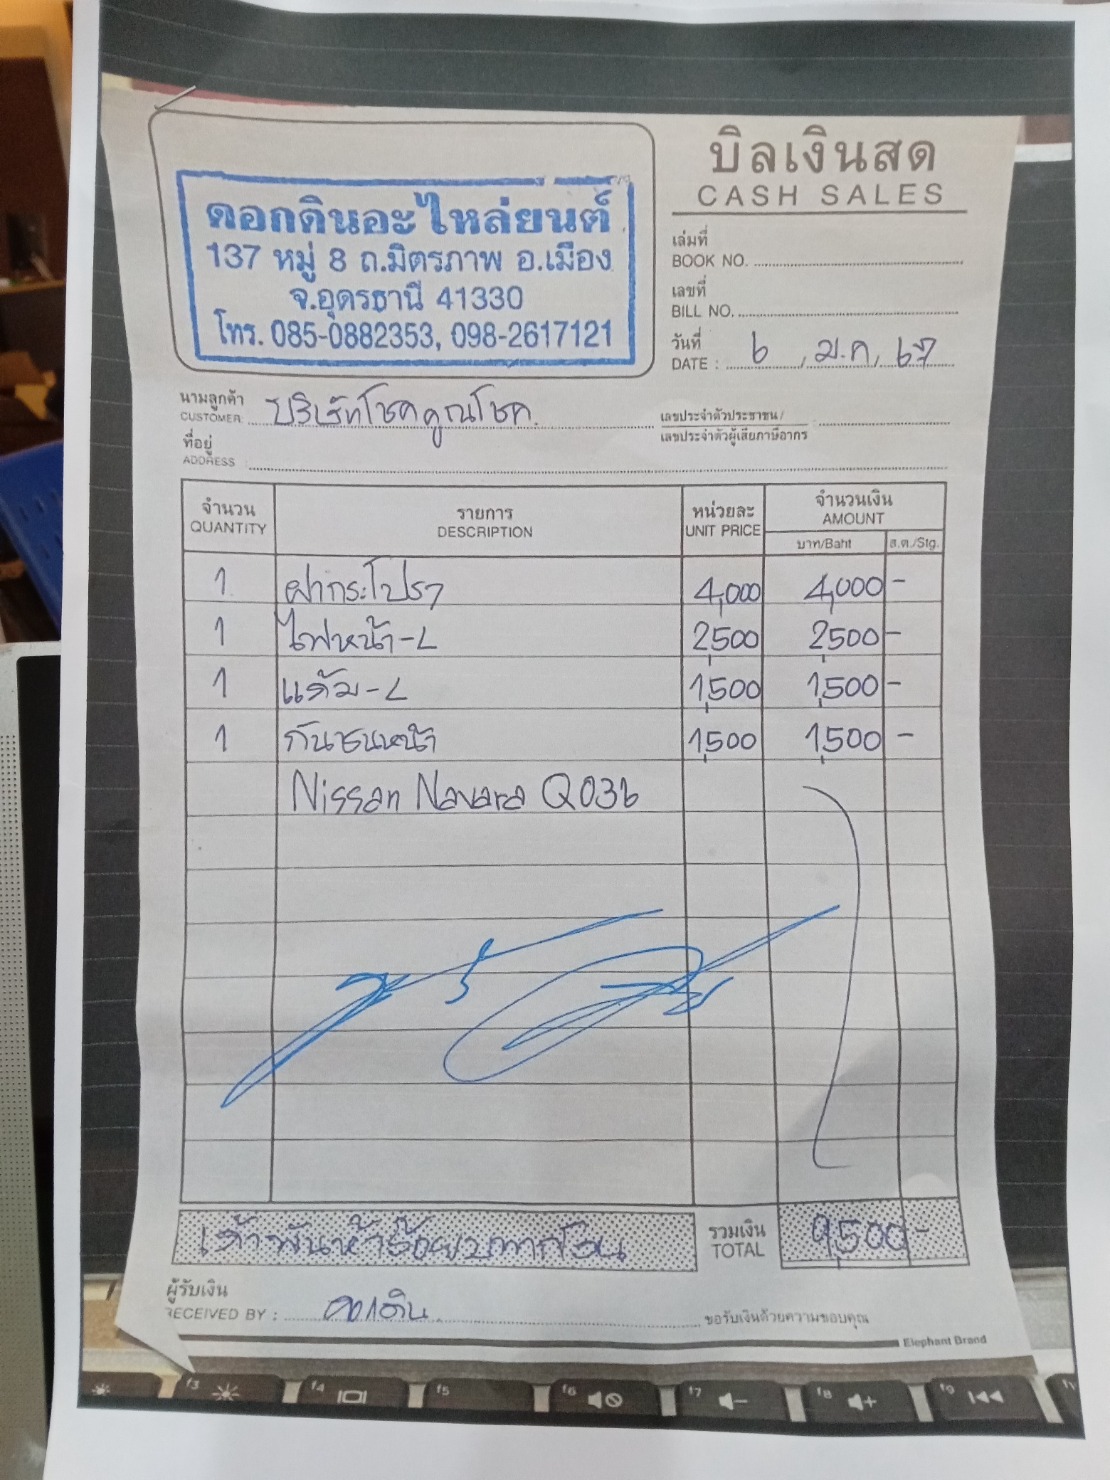 บิลเงินสด
CASH SALES
ดอกดินอะไหล่ยนต์
137 หมู่ 8 ถ.มิตรภาพ อ.เมือง
จ.อุดรธานี 41330
โทร. 085-0882353, 098-2617121
เล่มที่
BOOK NO.
เลขที่
BILL NO.
วันที่
DATE : ๖ , ม.ค, ๖๗
นามลูกค้า
CUSTOMER บริษัทโชคคูณโชค
เลขประจำตัวประชาชน/
เลขประจำตัวผู้เสียภาษีอากร
ที่อยู่
ADDRESS
จำนวน รายการ หน่วยละ จำนวนเงิน
QUANTITY DESCRIPTION UNIT PRICE AMOUNT
บาท/Baht ส.ต./Stg.
1 ฝากระโปรง 4,000 4,000 -
1 ไฟหน้า-L 2,500 2,500 -
1 แก้ม-L 1,500 1,500 -
1 กันชนหน้า 1,500 1,500 -
Nissan Navara Q036
เก้าพันห้าร้อยบาทถ้วน รวมเงิน 9,500 -
TOTAL
ผู้รับเงิน
RECEIVED BY : ดอกดิน ขอรับเงินด้วยความขอบคุณ
Elephant Brand
f3 f4 f5 f6 f7 f8 f9